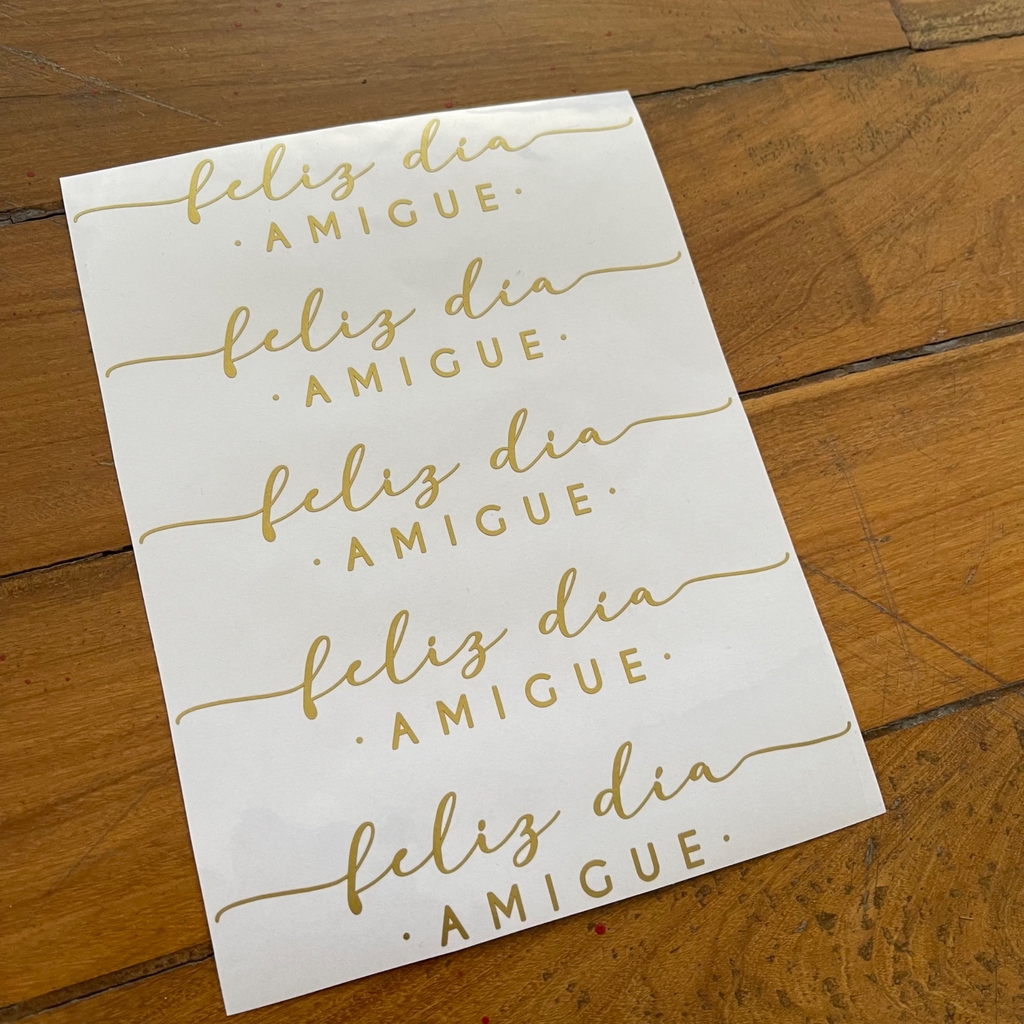 feliz dia
·AMIGUE·
feliz dia
·AMIGUE·
feliz dia
·AMIGUE·
feliz dia
·AMIGUE·
feliz dia
·AMIGUE·